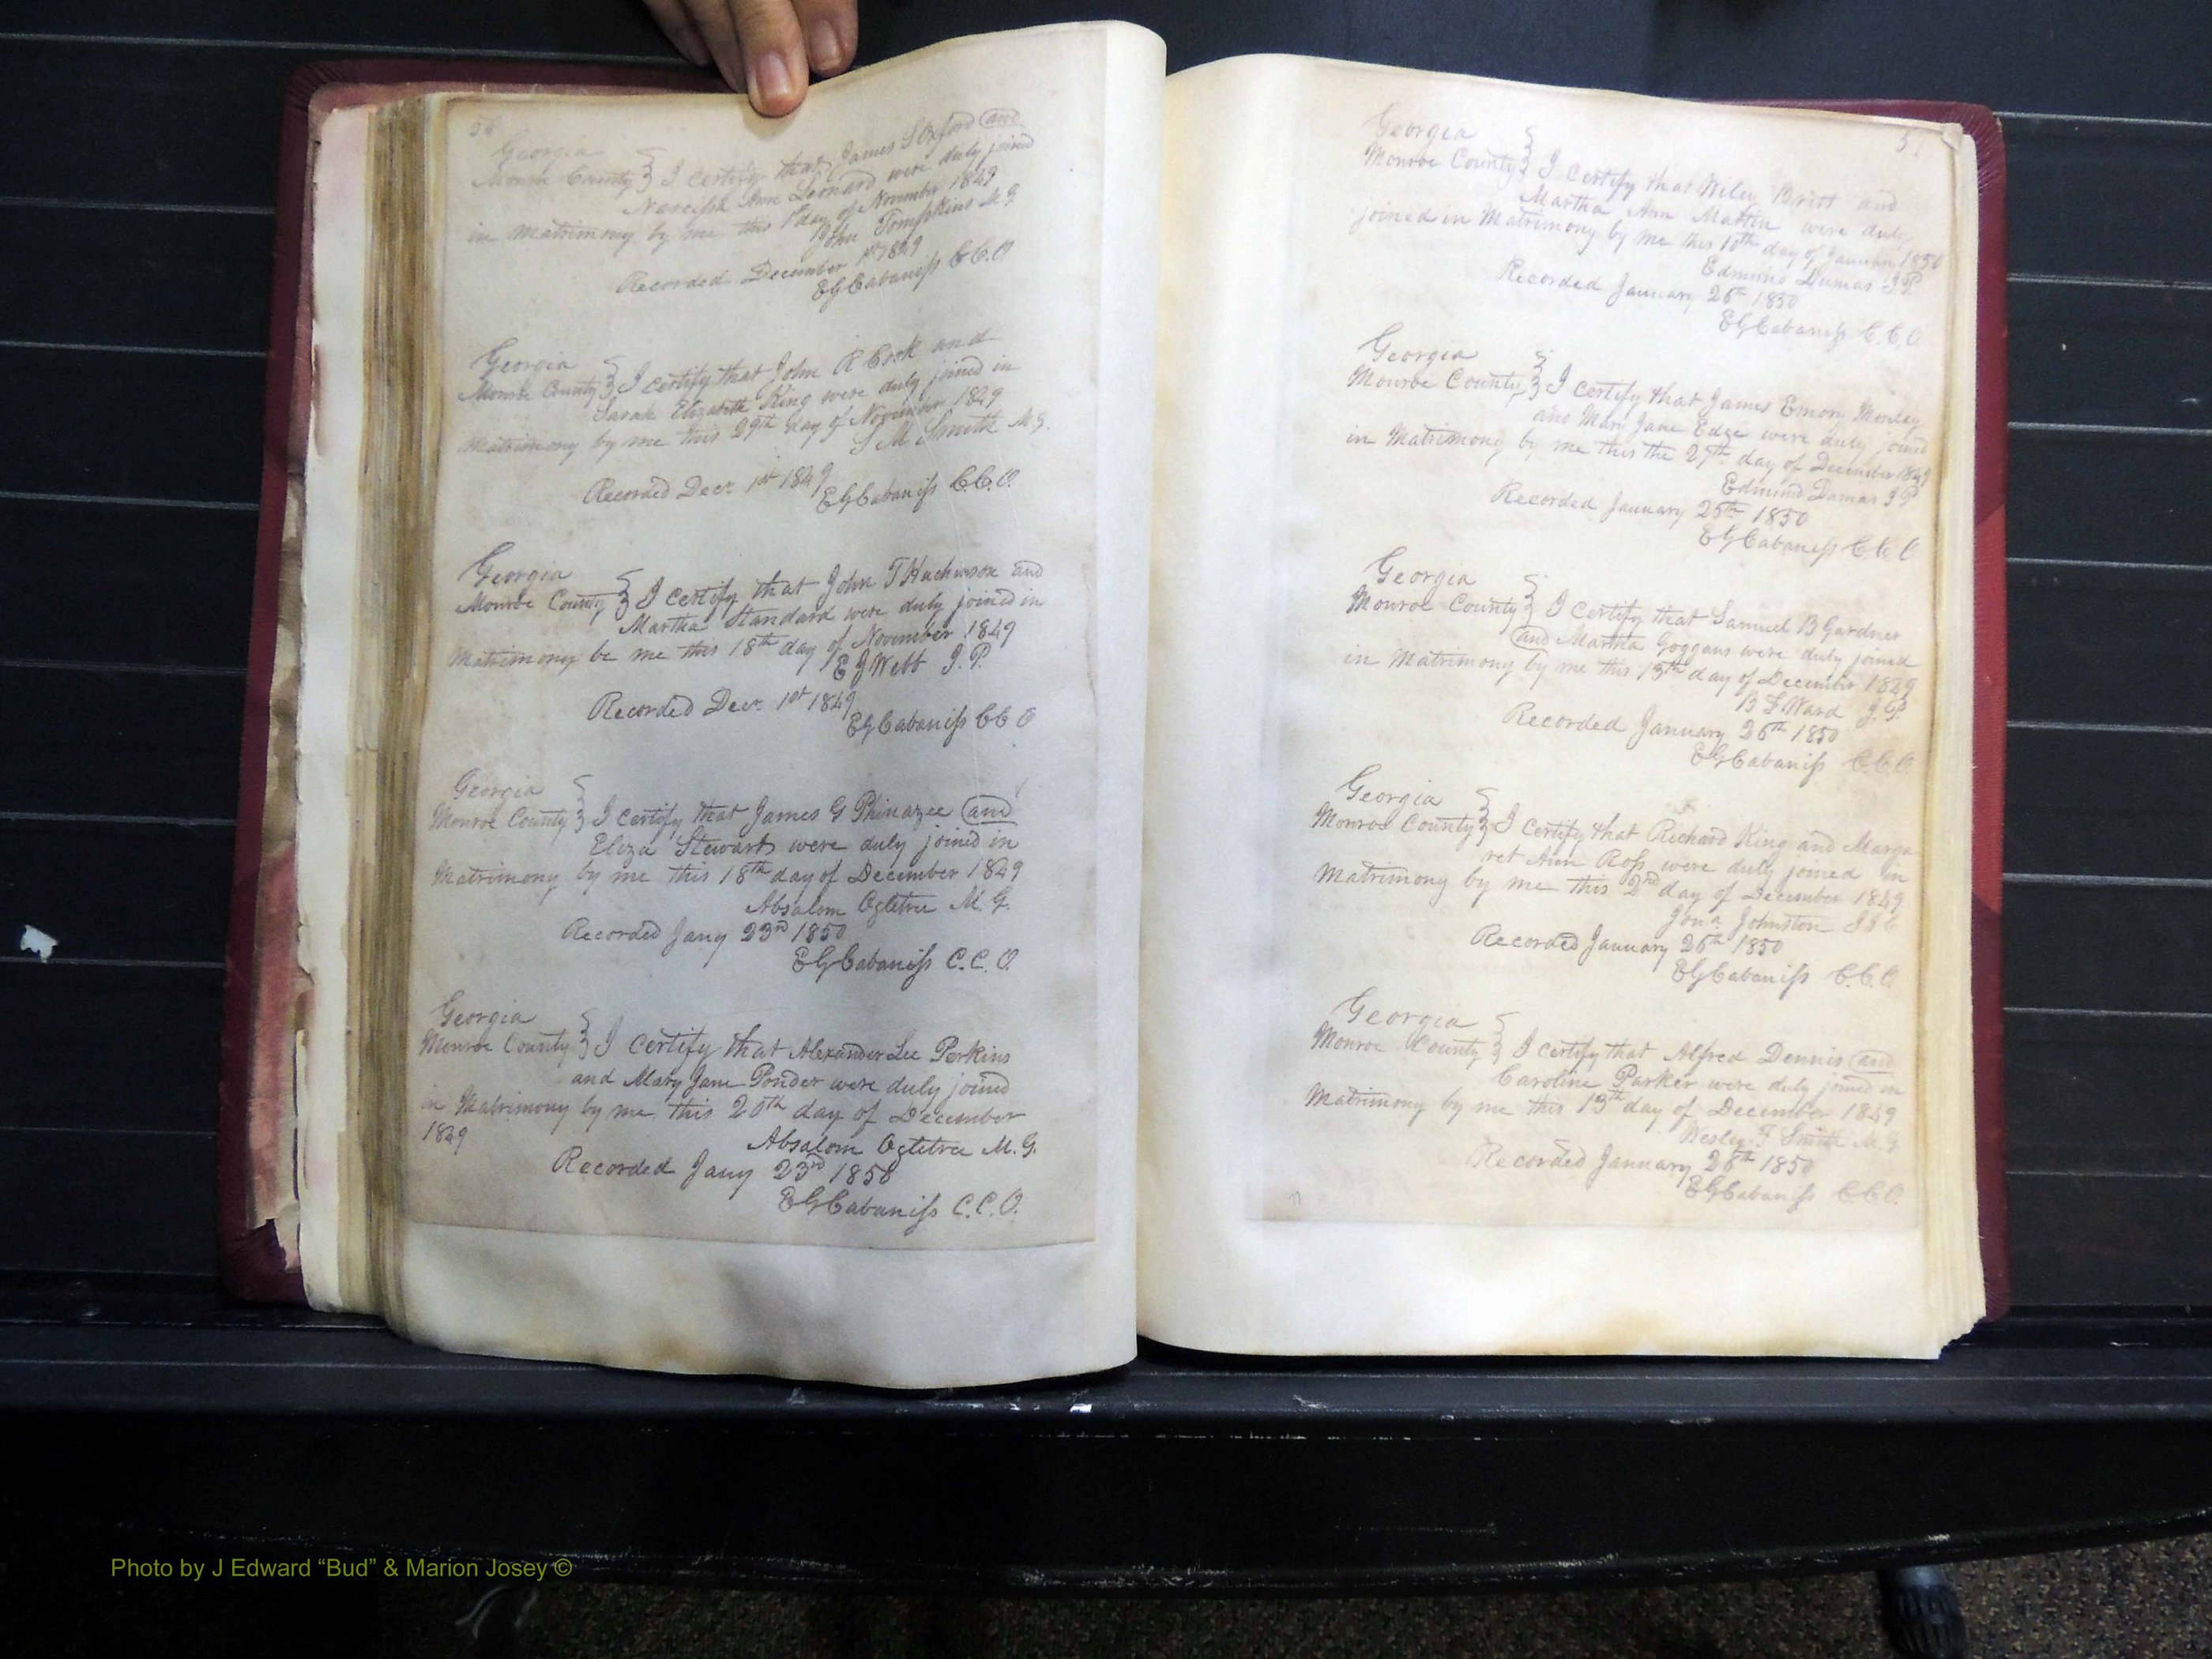 56
Georgia
Monroe County } I certify that James S Oxford and
Narcissa Ann Leonard were duly joined
in Matrimony by me this 1st day of November 1849
John Tompkins M.G.
Recorded December 1st 1849
EG Cabaniss C.C.O
Georgia
Monroe County } I certify that John R Cook and
Sarah Elizabeth King were duly joined in
Matrimony by me this 29th day of November 1849
S M Smith M.G.
Recorded Decr. 1st 1849
EG Cabaniss C.C.O.
Georgia
Monroe County } I certify that John T Huchinson and
Martha Standard were duly joined in
Matrimony be me this 18th day of November 1849
E J Webb J.P.
Recorded Decr. 1st 1849
EG Cabaniss CC O
Georgia
Monroe County } I certify that James G Phinazee and
Eliza Stewart were duly joined in
Matrimony by me this 18th day of December 1849
Absalom Ogletree M.G.
Recorded Jany 23rd 1850
EG Cabaniss C.C.O.
Georgia
Monroe County } I certify that Alexander Lee Perkins
and Mary Jane Ponder were duly joined
in Matrimony by me this 20th day of December
1849
Absalom Ogletree M.G.
Recorded Jany 23rd 1850
EG Cabaniss C.C.O.
57
Georgia
Monroe County } I certify that Wiley Britt and
Martha Ann Martin were duly
joined in Matrimony by me this 10th day of January 1850
Edmund Dumas J.P.
Recorded January 26th 1850
EG Cabaniss C.C.O
Georgia
Monroe County } I certify that James Emory Monday
and Mary Jane Edge were duly joined
in Matrimony by me this the 27th day of December 1849
Edmund Dumas J.P.
Recorded January 26th 1850
EG Cabaniss C C O
Georgia
Monroe County } I certify that Samuel B Gardner
and Martha Goggans were duly joined
in Matrimony by me this 13th day of December 1849
B F Ward J.P.
Recorded January 26th 1850
EG Cabaniss C.C.O.
Georgia
Monroe County } I certify that Richard King and Marga
ret Ann Ross were duly joined in
Matrimony by me this 2nd day of December 1849
Jona. Johnston
Recorded January 26th 1850
EG Cabaniss C.C.O.
Georgia
Monroe County } I certify that Alfred Dennis and
Caroline Parker were duly joined in
Matrimony by me this 13th day of December 1849
Wesley F Smith M.G
Recorded January 26th 1850
EG Cabaniss CCO.
Photo by J Edward “Bud” & Marion Josey ©